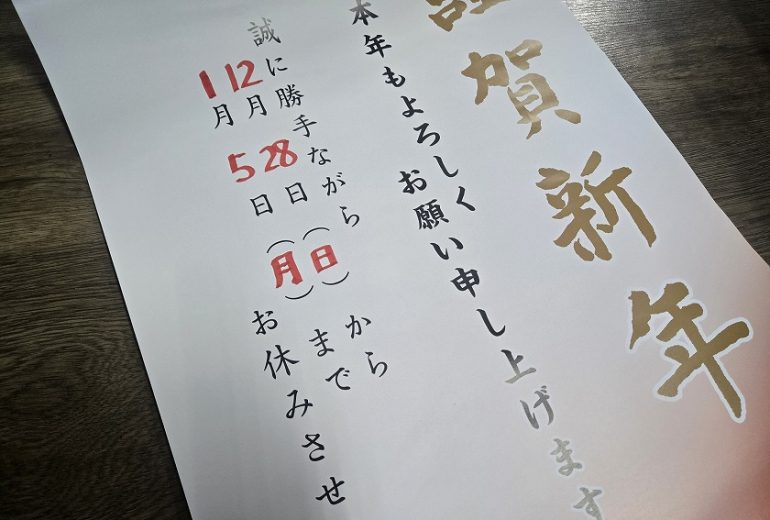 謹賀新年
本年もよろしく
お願い申し上げます
誠に勝手ながら
12月28日(日)から
1月5日(月)まで
お休みさせ